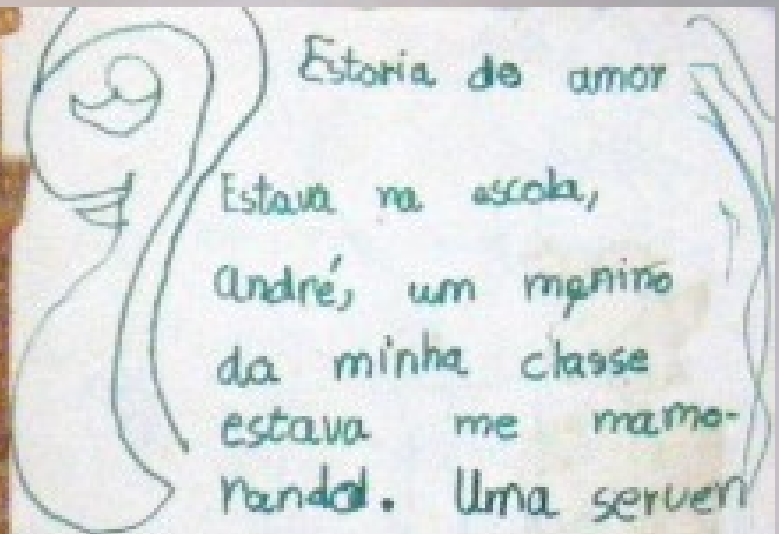 Estoria de amor
Estava na escola,
André, um menino
da minha classe
estava me mamo-
rando. Uma serven